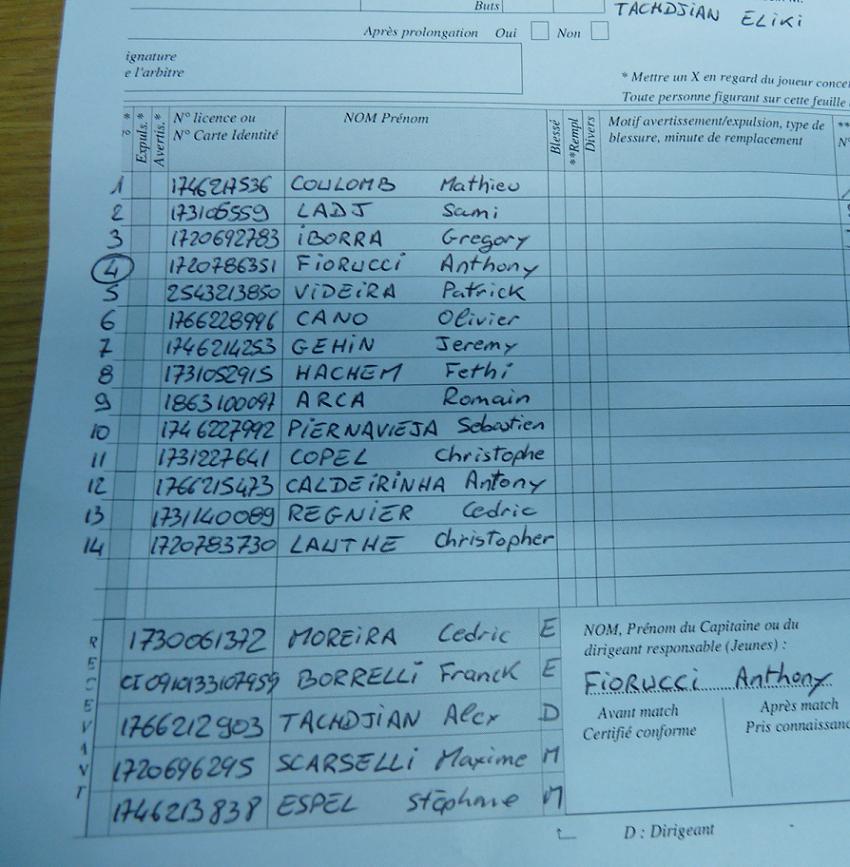 Buts
TACHDJIAN ELiKi
Après prolongation Oui Non
ignature
e l'arbitre
* Mettre un X en regard du joueur conce
Toute personne figurant sur cette feuille
Expuls.* Avertis.* N° licence ou NOM Prénom Blessé **Rempl Divers Motif avertissement/expulsion, type de **
N° Carte Identité blessure, minute de remplacement N°
1 1746217536 COULOMB Mathieu
2 173106559 LADJ Sami
3 1720692783 iBORRA Gregory
4 1720786351 FiORUCCi Anthony
5 2543213850 ViDEiRA Patrick
6 1766228996 CANO Olivier
7 1746214253 GEHiN Jeremy
8 1731052915 HACHEM Fethi
9 1863100097 ARCA Romain
10 1746227992 PiERNAViEJA Sebastien
11 1731227641 COPEL Christophe
12 1766215473 CALDEiRiNHA Antony
13 1731140089 REGNiER Cedric
14 1720783730 LAUTHE Christopher
RECEVANT
1730061372 MOREiRA Cedric E
CI0910133107959 BORRELLi Franck E
1766212903 TACHDJIAN Alex D
1720696295 SCARSELLi Maxime M
1746213838 ESPEL Stéphane M
NOM, Prénom du Capitaine ou du
dirigeant responsable (Jeunes) :
FiORUCCi Anthony
Avant match Après match
Certifié conforme Pris connaissanc
D : Dirigeant